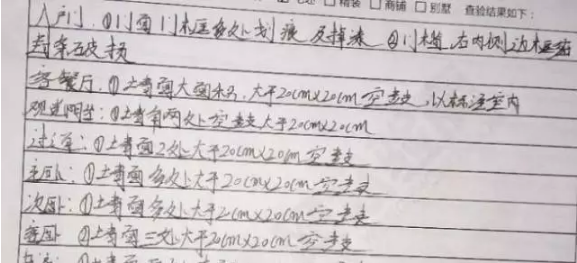 精装 □商铺 □别墅 查验结果如下：
入户门：①门面门框多处划痕及掉漆 ②门槛右内侧边框
条破损
客餐厅：①土墙面大面积，大于20cm×20cm空鼓，以标注室内
观景阳台：①土墙有两处空鼓大于20cm×20cm
过道：①土墙面2处大于20cm×20cm空鼓
主卧：①土墙面多处大于20cm×20cm空鼓
次卧：①土墙面多处大于2cm×20cm空鼓
客卧：①土墙面三处大于20cm×20cm空鼓